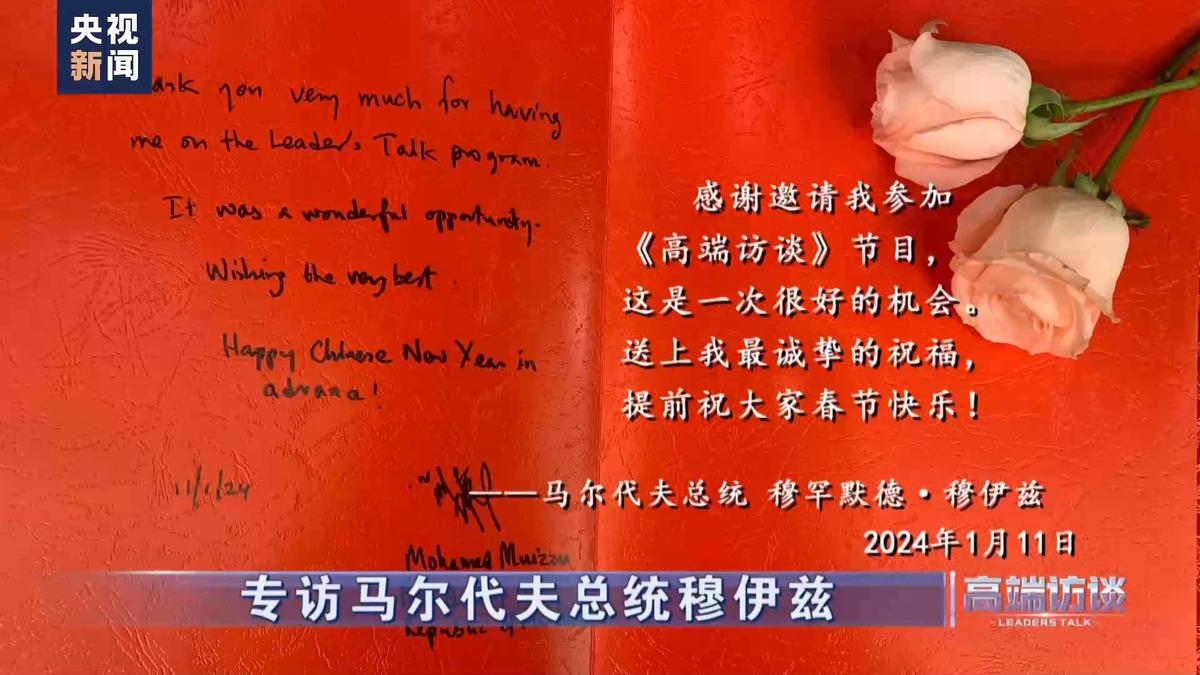 央视
新闻
ank you very much for having
me on the Leaders Talk program.
It was a wonderful opportunity.
Wishing the very best.
Happy Chinese New Year in
advance!
11/1/24
Mohamed Muizzu
感谢邀请我参加
《高端访谈》节目，
这是一次很好的机会。
送上我最诚挚的祝福，
提前祝大家春节快乐！
——马尔代夫总统 穆罕默德·穆伊兹
2024年1月11日
专访马尔代夫总统穆伊兹
高端访谈
LEADERS TALK